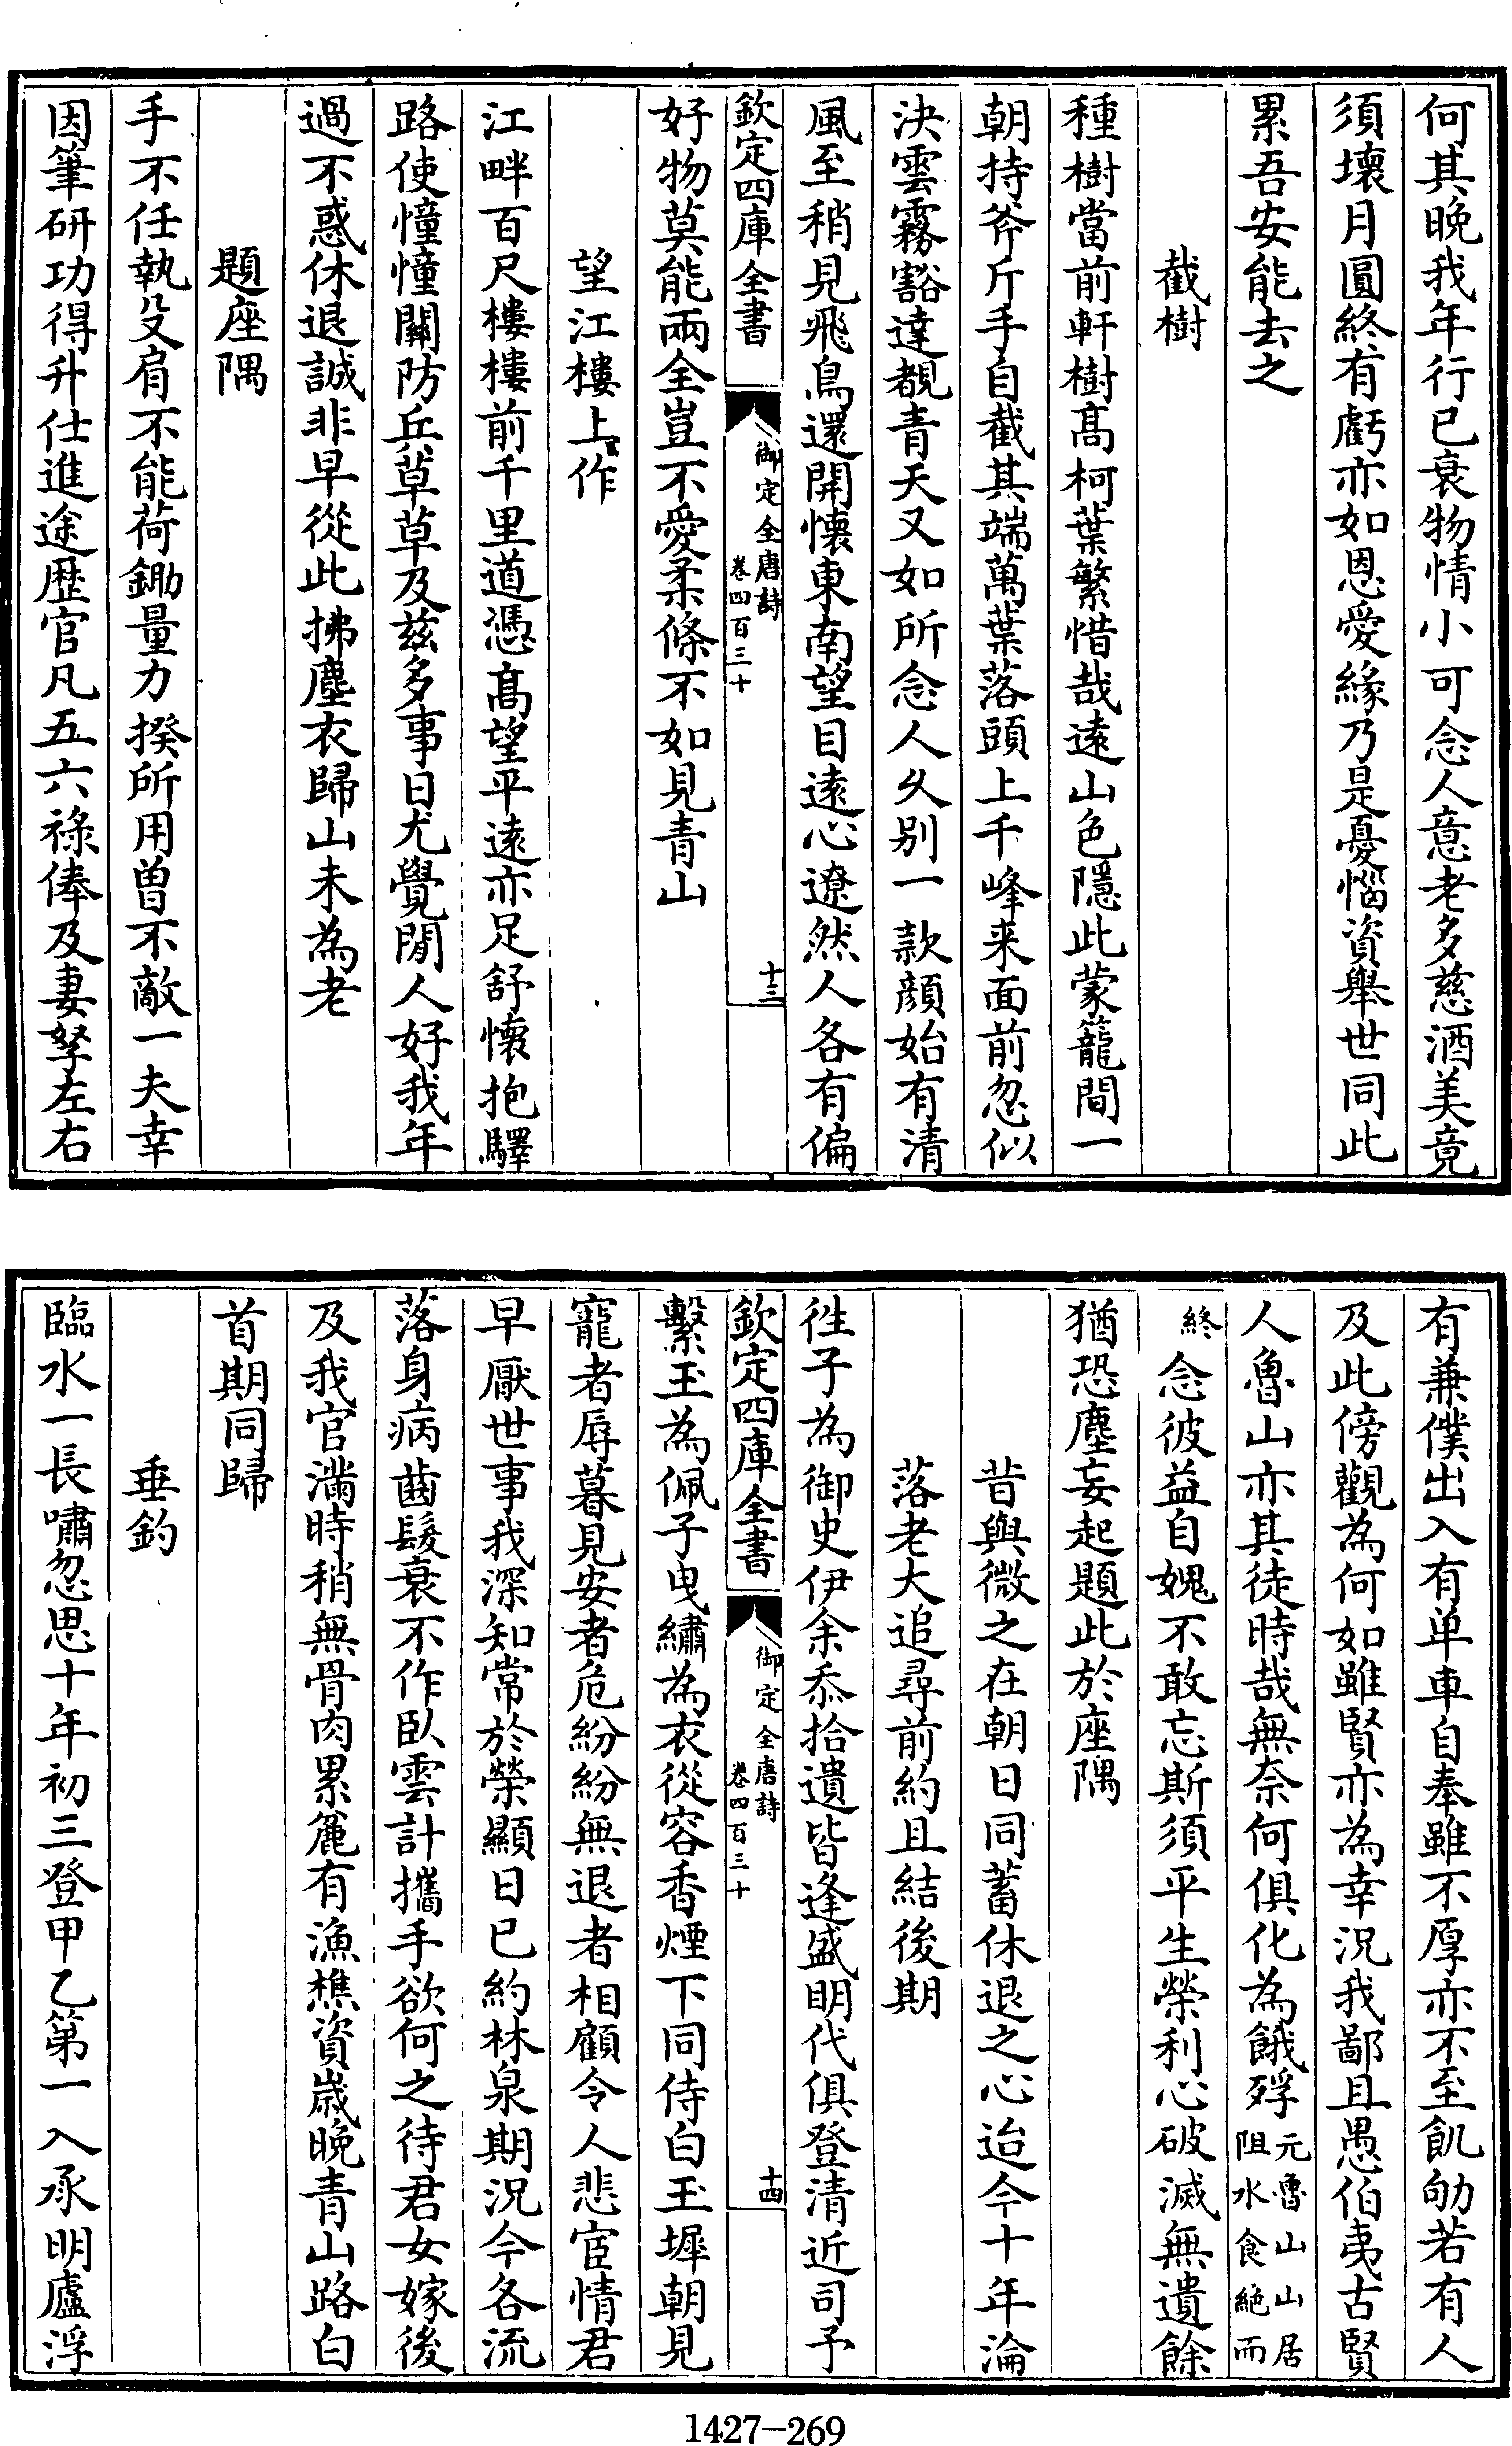 何其晚我年行已衰物情小可念人意老多慈酒美竟
須壞月圓終有虧亦如恩愛緣乃是憂惱資舉世同此
累吾安能去之
截樹
種樹當前軒樹髙柯葉繁惜哉逺山色隱此蒙籠間一
朝持斧斤手自截其端萬葉落頭上千峰来面前忽似
決雲霧豁達覩青天又如所念人乆别一款顔始有清
風至稍見飛鳥還開懐東南望目逺心遼然人各有偏
欽定四庫全書
御定全唐詩
卷四百三十
十三
好物莫能兩全豈不愛柔條不如見青山
望江樓上作
江畔百尺樓樓前千里道憑髙望平逺亦足舒懐抱驛
路使憧憧關防兵草草及兹多事日尤覺閒人好我年
過不惑休退誠非早從此拂塵衣歸山未為老
題座隅
手不任執殳肩不能荷鋤量力揆所用曽不敵一夫幸
因筆研功得升仕進途歴官凡五六禄俸及妻孥左右
有兼僕出入有单車自奉雖不厚亦不至飢劬若有人
及此傍觀為何如雖賢亦為幸況我鄙且愚伯夷古賢
人魯山亦其徒時哉無奈何俱化為餓殍元魯山山居
阻水食絶而
終念彼益自媿不敢忘斯須平生榮利心破滅無遺餘
猶恐塵妄起題此於座隅
昔與微之在朝日同蓄休退之心迨今十年淪
落老大追尋前約且結後期
徃子為御史伊余忝拾遺皆逢盛明代俱登清近司予
欽定四庫全書
御定全唐詩
卷四百三十
十四
繫玉為佩子曳繡為衣從容香煙下同侍白玉墀朝見
寵者辱暮見安者危紛紛無退者相顧令人悲宦情君
早厭世事我深知常於榮顯日已約林泉期況今各流
落身病齒髮衰不作臥雲計攜手欲何之待君女嫁後
及我官滿時稍無骨肉累麄有漁樵資嵗晚青山路白
首期同歸
垂釣
臨水一長嘯忽思十年初三登甲乙第一入承明廬浮
1427-269